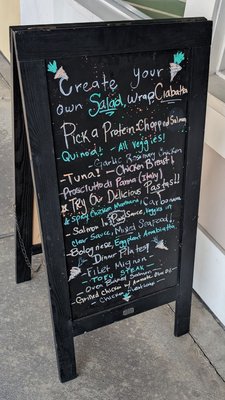 Create Your
Own Salad, Wrap, Ciabatta
Pick a Protein: Chopped Salmon
Quinoa! - All veggies!
Garlic Rosemary Chicken
- Tuna! - Chicken Breast!
Prosciutto di Parma (Italy)
* Try Our Delicious Pastas!!
* Spicy Chicken Carbonara
Salmon in Red Sauce, Veggies in
Clear Sauce, Mixed Seafood!
Bolognese, Eggplant Arrabiatta
Dinner Plates!
- Filet Mignon -
- Tofu Steak -
- Oven Baked Salmon
- Grilled Chicken w/ Olive Oil
- Chicken